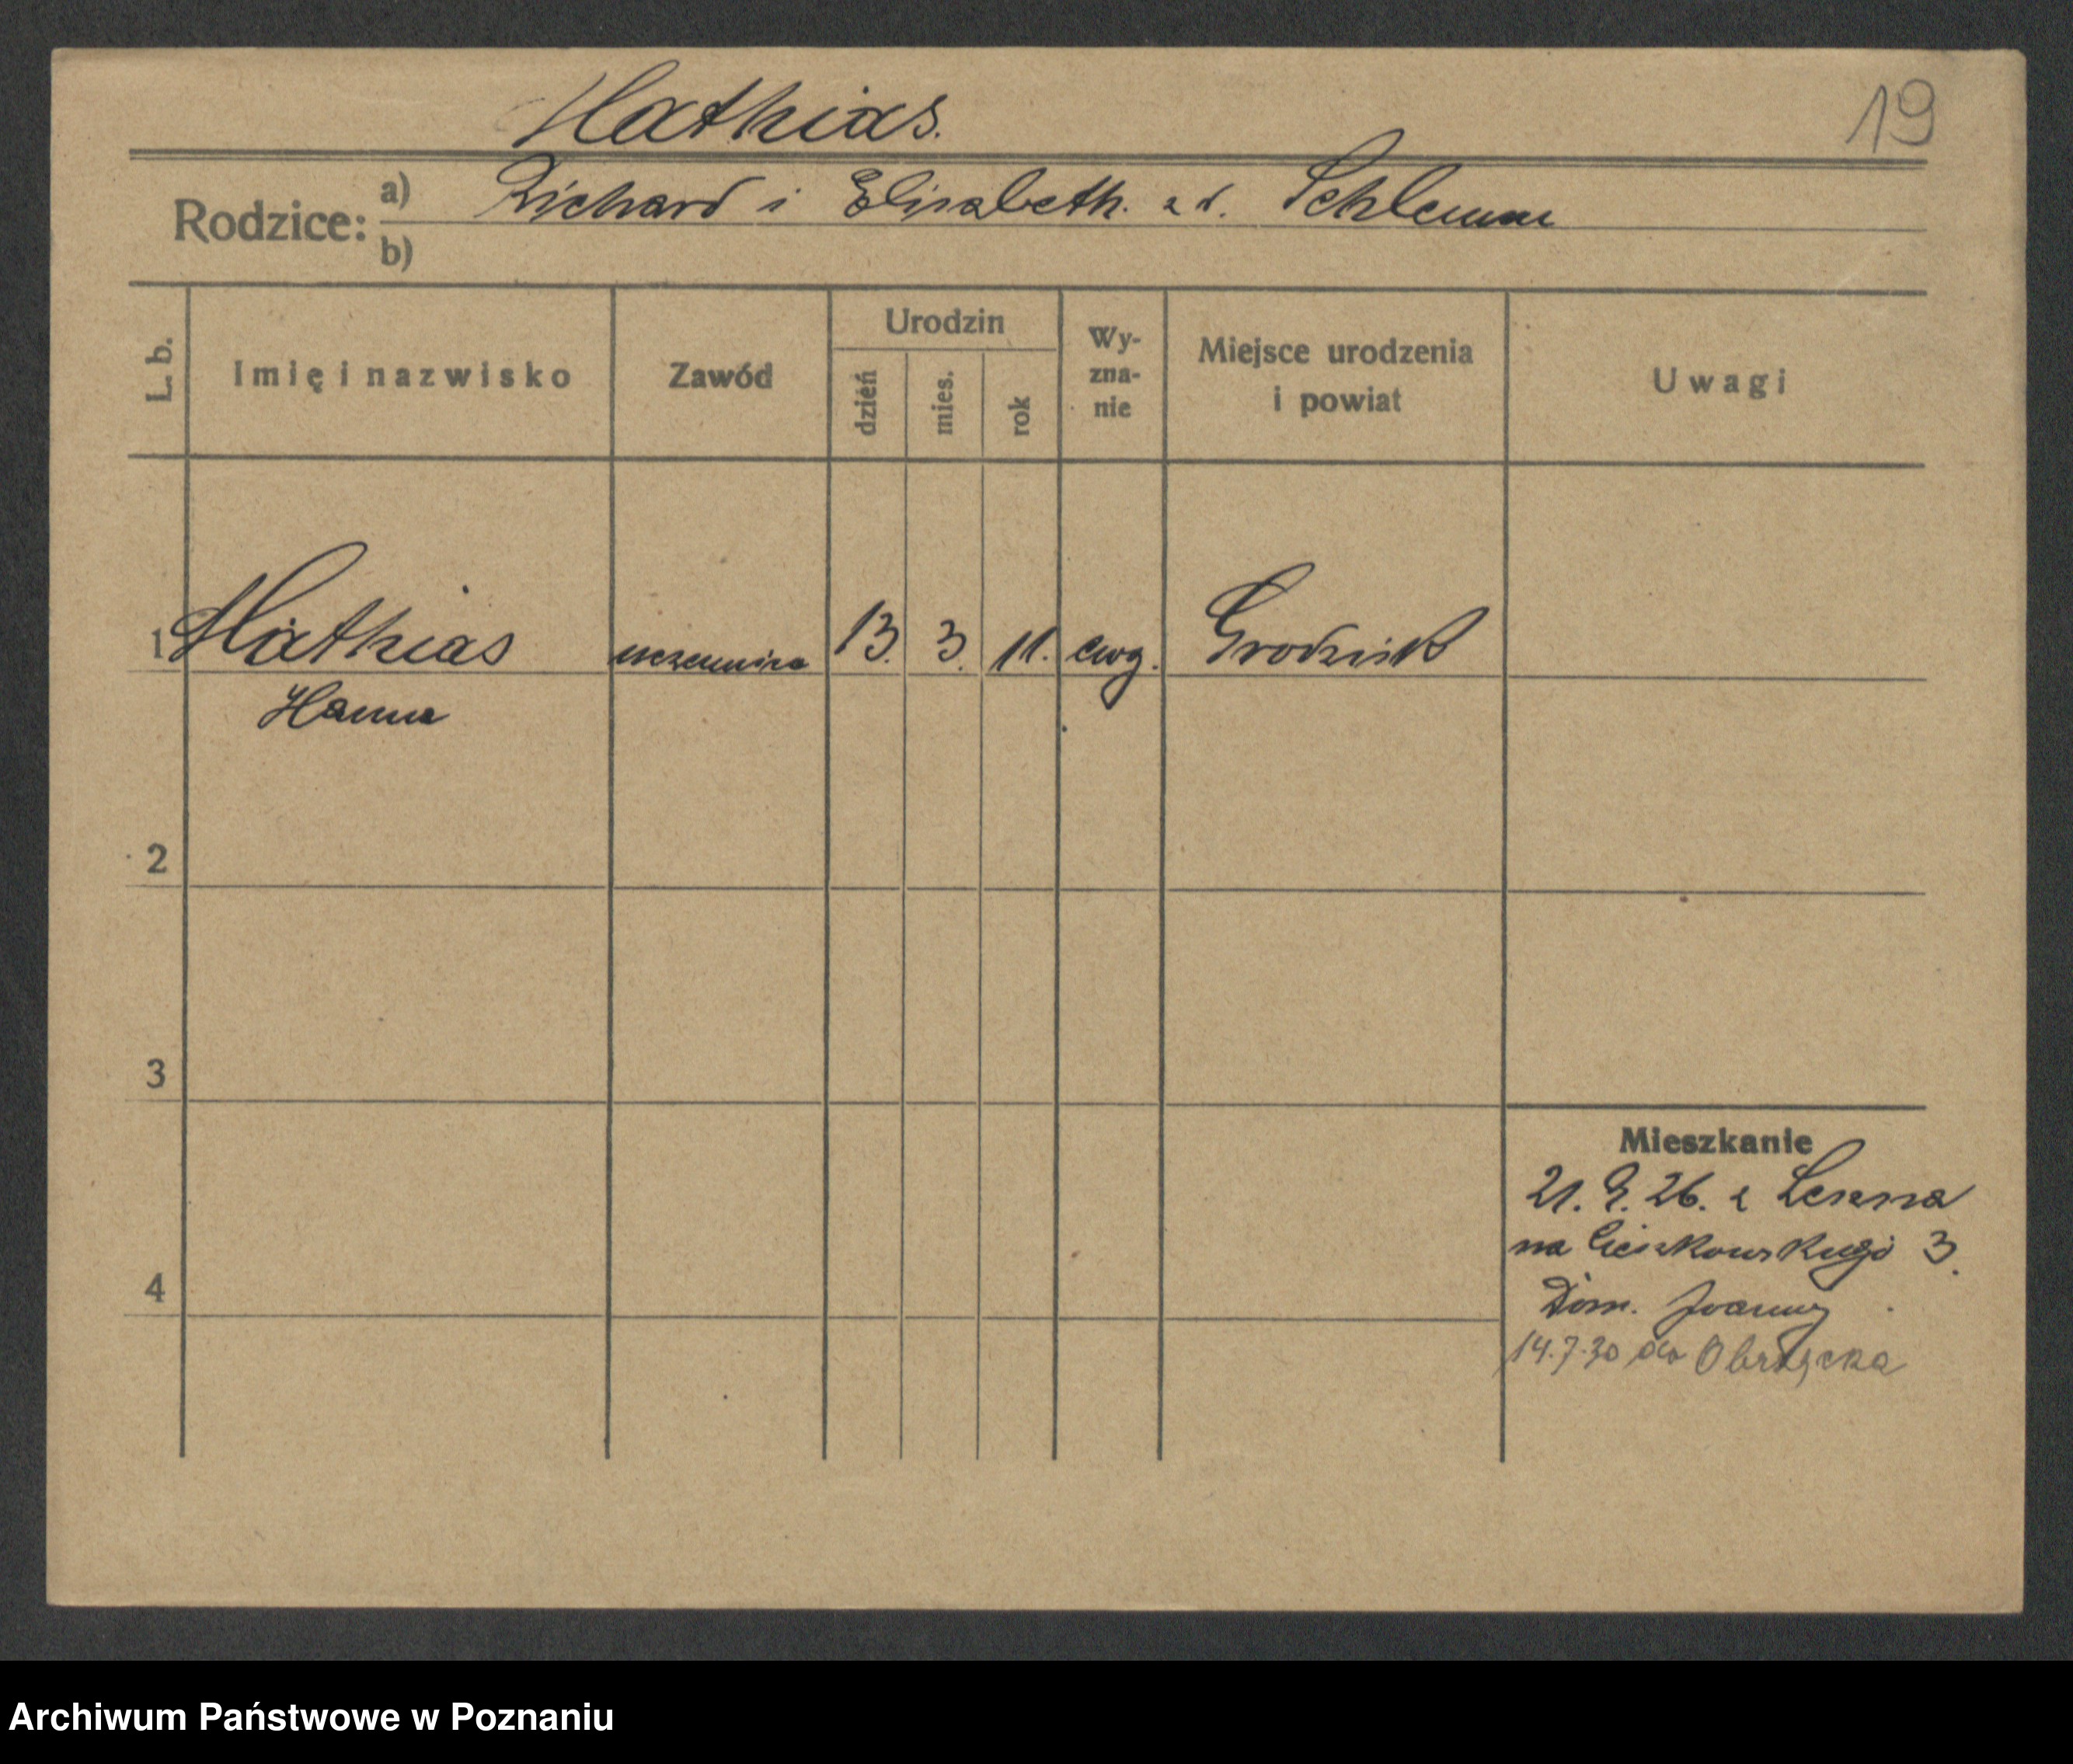 Mathias.
19
Rodzice: a) Richard i Elisabeth. z d. Schlemm
b)
L. b.
Imię i nazwisko
Zawód
Urodzin
dzień
mies.
rok
Wy-
zna-
nie
Miejsce urodzenia
i powiat
Uwagi
1 Mathias uczennica 13. 3. 11. ewg. Grodzisk
Hanna
2
3
4
Mieszkanie
21. 9. 26. z Leszna
na Cieszkowskiego 3.
Dom.
14.7.30 do Obrzycka
Archiwum Państwowe w Poznaniu